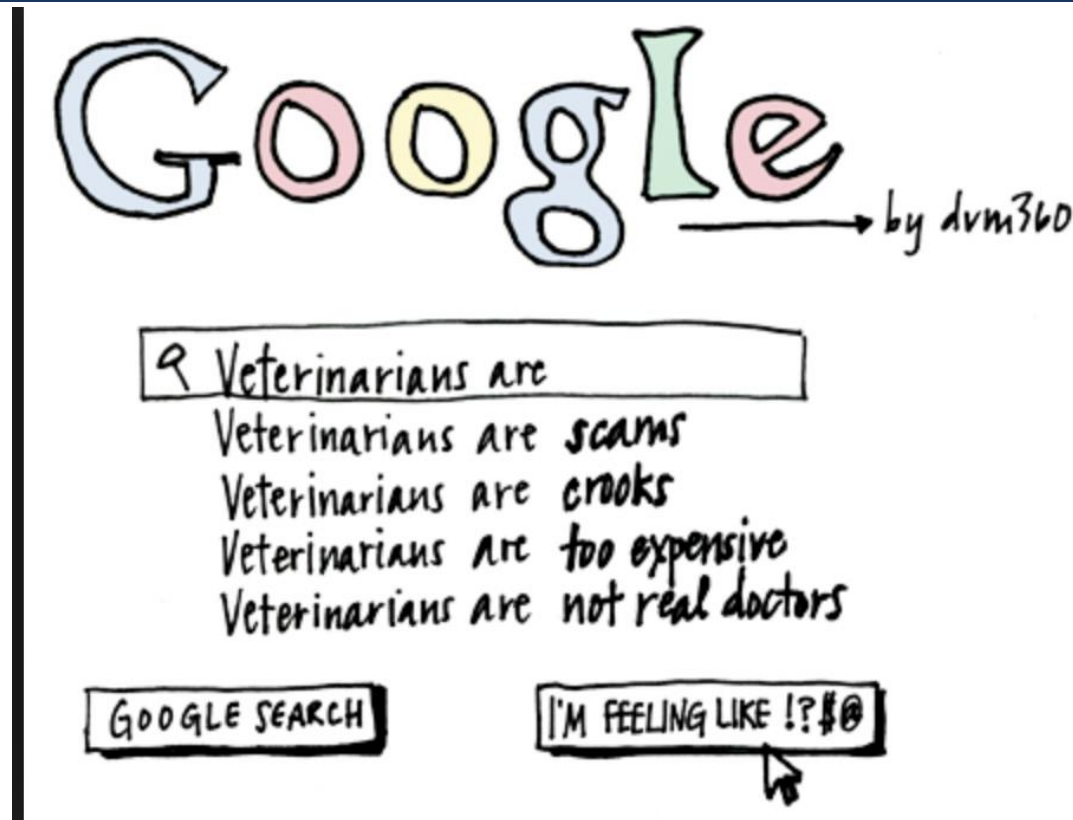 Google
by dvm360
Veterinarians are
Veterinarians are scams
Veterinarians are crooks
Veterinarians are too expensive
Veterinarians are not real doctors
GOOGLE SEARCH
I'M FEELING LIKE !?$@